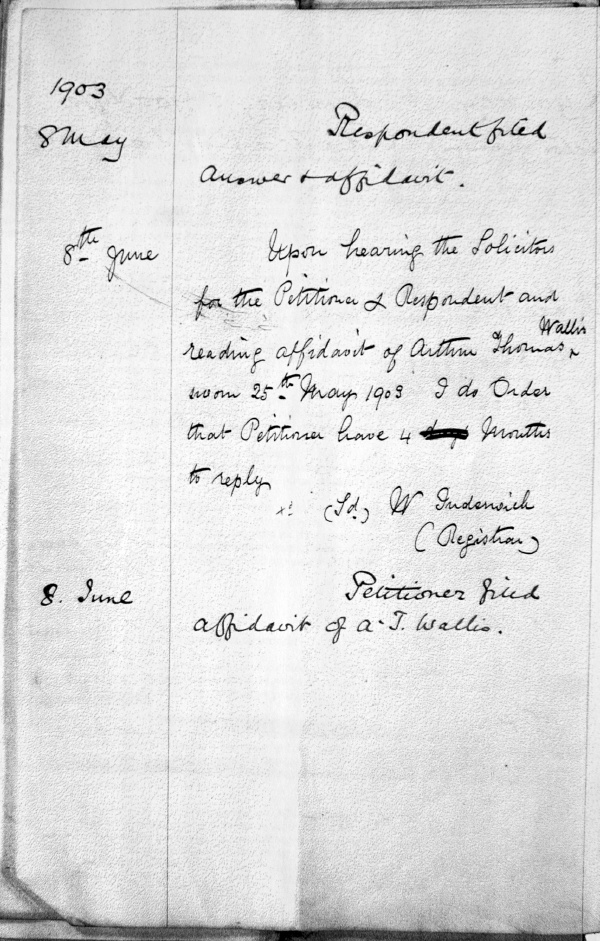 1903
8 May Respondent filed
Answer & affidavit.
8th June Upon hearing the Solicitors
for the Petitioner & Respondent and
reading affidavit of Arthur Thomas Wallis
sworn 25th May 1903 I do Order
that Petitioner have 4 days Months
to reply
(Sd) W Inderwick
(Registrar)
8. June Petitioner filed
affidavit of A. T. Wallis.